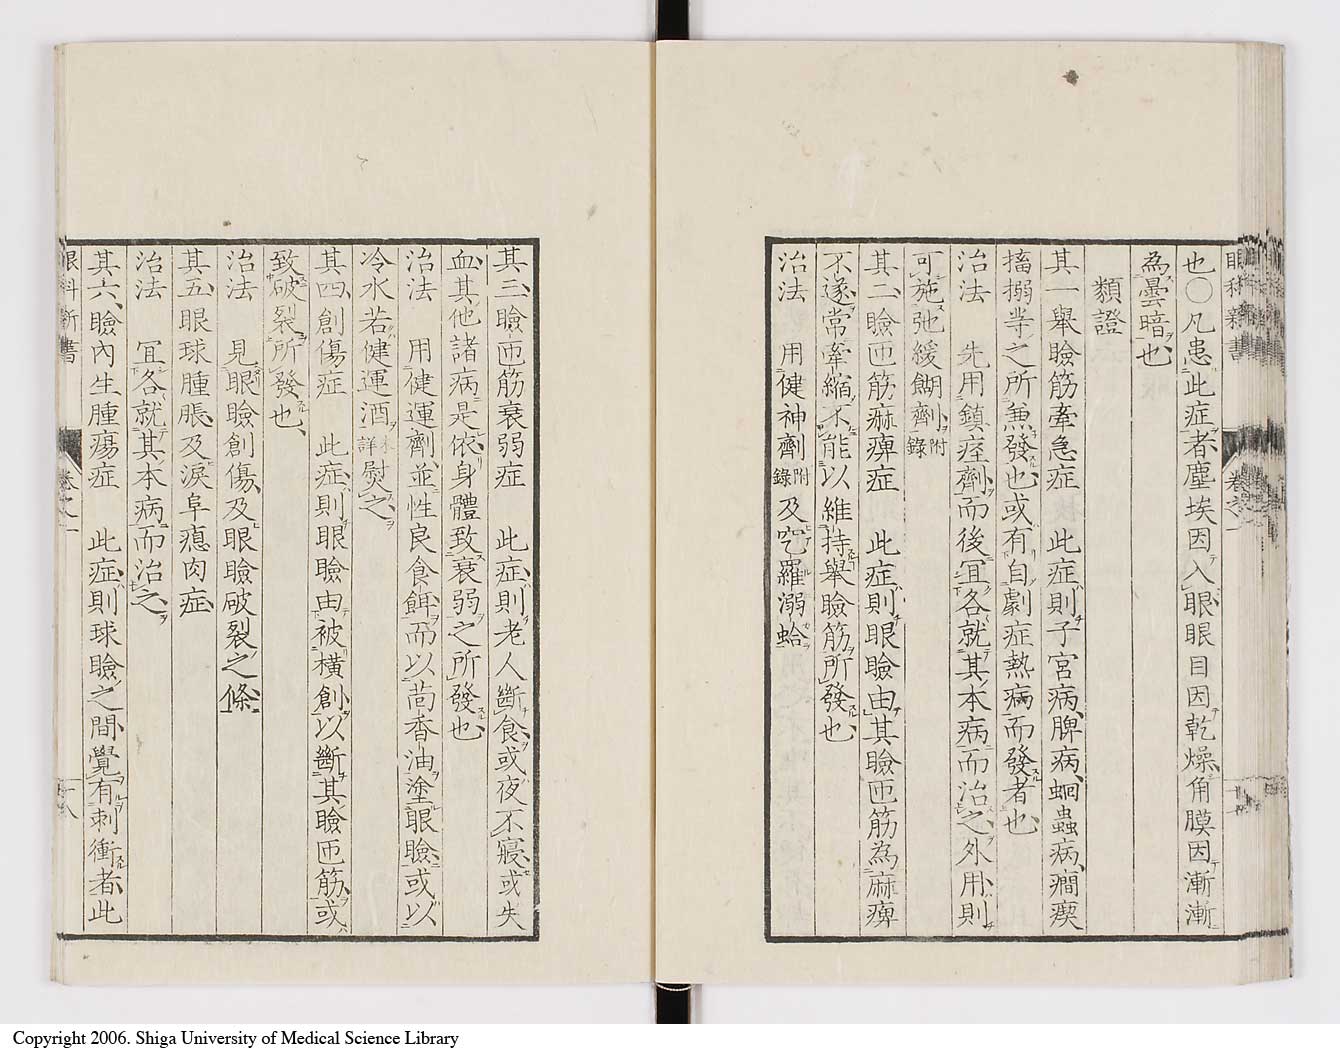 眼科新書　巻之一
也〇凡患此症者塵埃因入眼眼目因乾燥角膜因漸漸
為曇暗也
類證
其一擧瞼筋牽急症　此症則子宮病脾病蛔蟲病癇瘈
搐搦等之所兼發也或有自劇症熱病而發者也
治法　先用鎮痙劑而後冝各就其本病而治之外用則
可施弛緩餬劑附錄
其二瞼匝筋麻痺症　此症則眼瞼由其瞼匝筋為麻痺
不遂常牽縮不能以維持擧瞼筋所發也
治法　用健神劑附錄及吃羅溺蛤
其三瞼匝筋衰弱症　此症則老人斷食或夜不寢或失
血其他諸病是依身體致衰弱之所發也
治法　用健運劑並性良食餌而以茴香油塗眼瞼或以
冷水若健運酒詳本熨之
其四創傷症　此症則眼瞼由被橫創以斷其瞼匝筋或
致破裂所發也
治法　見眼瞼創傷及眼瞼破裂之條
其五眼球腫脹及淚阜瘜肉症
治法　冝各就其本病而治之
其六瞼內生腫瘍症　此症則球瞼之間覺有刺衝者此
眼科新書　巻之一　十八
Copyright 2006. Shiga University of Medical Science Library